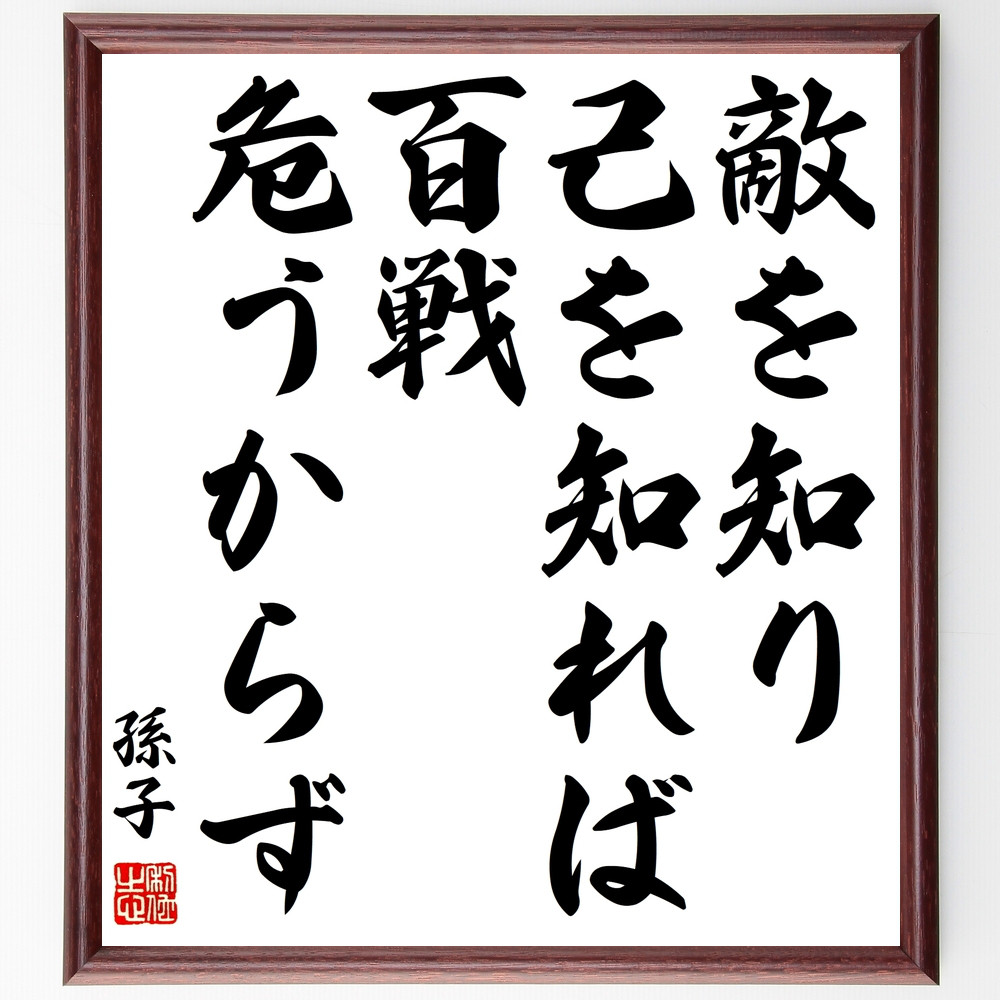 敵を知り
己を知れば
百戦
危うからず
孫子